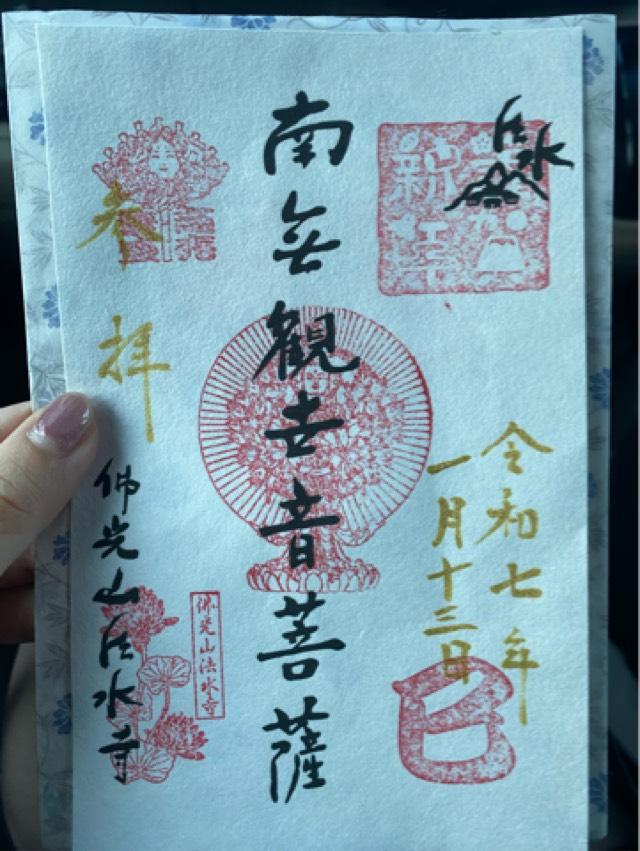 法水
新年
令和七年
一月十三日
巳
南無觀世音菩薩
参拝
佛光山法水寺
佛光山法水寺